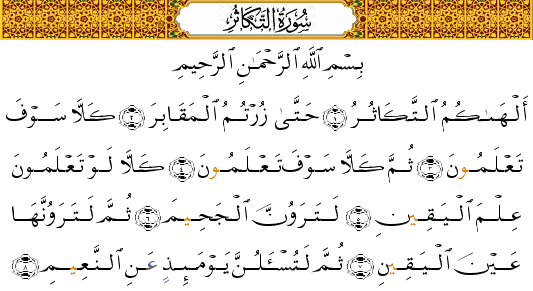 سُورَةُ التَّكَاثُرِ
بِسْمِ اللَّهِ الرَّحْمَٰنِ الرَّحِيمِ
أَلْهَىٰكُمُ التَّكَاثُرُ ۝١ حَتَّىٰ زُرْتُمُ الْمَقَابِرَ ۝٢ كَلَّا سَوْفَ
تَعْلَمُونَ ۝٣ ثُمَّ كَلَّا سَوْفَ تَعْلَمُونَ ۝٤ كَلَّا لَوْ تَعْلَمُونَ
عِلْمَ الْيَقِينِ ۝٥ لَتَرَوُنَّ الْجَحِيمَ ۝٦ ثُمَّ لَتَرَوُنَّهَا
عَيْنَ الْيَقِينِ ۝٧ ثُمَّ لَتُسْـَٔلُنَّ يَوْمَئِذٍ عَنِ النَّعِيمِ ۝٨